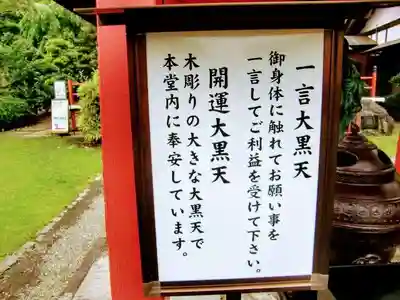 一言大黒天
御身体に触れてお願い事を
一言してご利益を受けて下さい。
開運大黒天
木彫りの大きな大黒天で
本堂内に奉安しています。